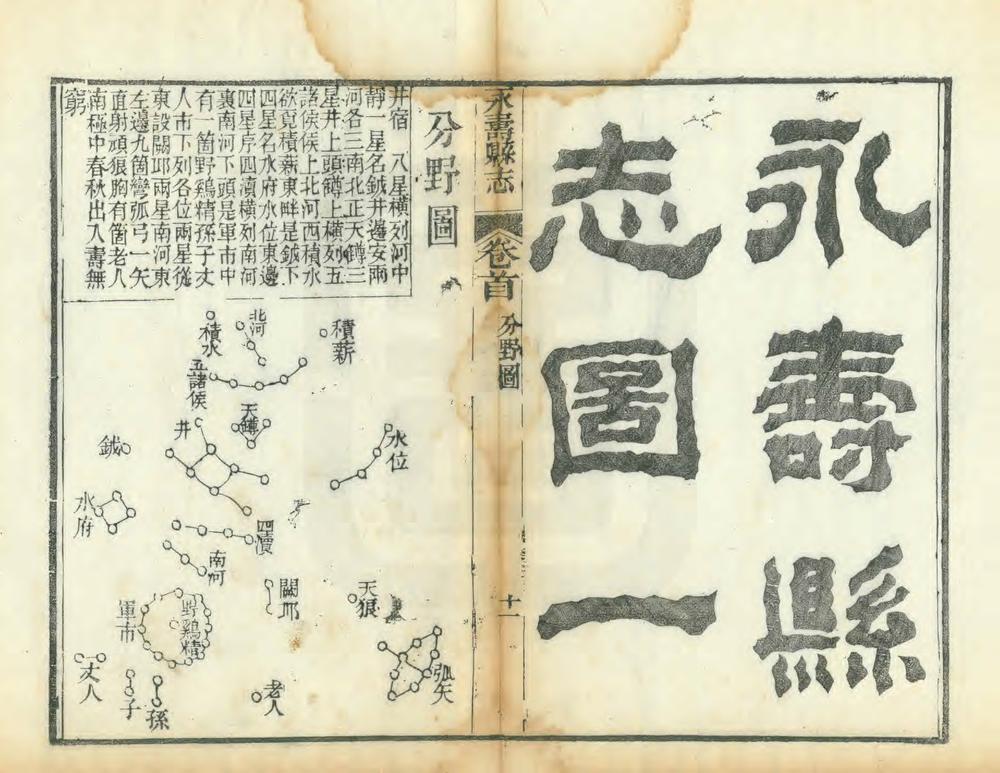 永壽縣
志圖一
永壽縣志
卷首
分野圖
十一
分野圖
井宿 八星橫列河中
靜一星名鉞井邊安兩
河各三南北正天罇三
星井上頭罇上橫列五
諸候候上北河西積水
欲覓積薪東畔是鉞下
四星名水府水位東邊
四星序四瀆橫列南河
裏南河下頭是軍市中
有一箇野鷄精孫子丈
人市下列各位兩星從
東設闕邱兩星南河東
左邊九箇彎弧弓一矢
直射頑狼胸有箇老人
南極中春秋出入壽無
窮
積薪
北河
積水
五諸候
天罇
井
水位
鉞
水府
四瀆
南河
闕邱
天狼
野鷄精
軍市
弧矢
老人
孫
子
丈人